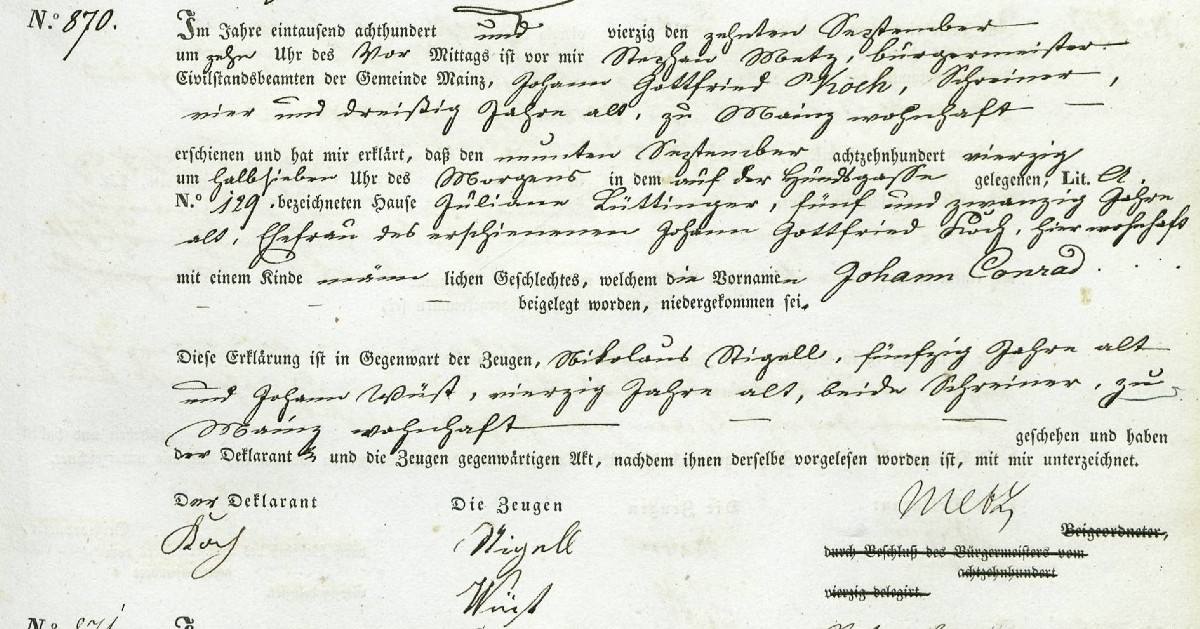 N.º 870.
Im Jahre eintausend achthundert und vierzig den zehnten September
um zehn Uhr des Vor Mittags ist vor mir Stephan Metz, bürgermeister
Civilstandsbeamten der Gemeinde Mainz, Johann Gottfried Koch, Schreiner,
vier und dreißig Jahre alt, zu Mainz wohnhaft
erschienen und hat mir erklärt, daß den neunten September achtzehnhundert vierzig
um halb sieben Uhr des Morgens in dem auf der Hundsgasse gelegenen, Lit. A.
N.º 129. bezeichneten Hause Juliane Lüttinger, fünf und zwanzig Jahre
alt, Ehefrau des erschienenen Johann Gottfried Koch, hier wohnhaft
mit einem Kinde männlichen Geschlechtes, welchem die Vornamen Johann Conrad
beigelegt worden, niedergekommen sei.
Diese Erklärung ist in Gegenwart der Zeugen, Nikolaus Stigell, fünfzig Jahre alt
und Johann Wüst, vierzig Jahre alt, beide Schreiner, zu
Mainz wohnhaft
geschehen und haben
der Deklarant und die Zeugen gegenwärtigen Akt, nachdem ihnen derselbe vorgelesen worden ist, mit mir unterzeichnet.
Der Deklarant Die Zeugen Metz
Koch Stigell Beigeordneter,
durch Beschluß des Bürgermeisters vom
achtzehnhundert
Wüst vierzig delegirt.
N.º 871.